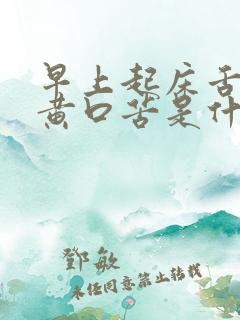 早上起床舌
黄口苦是什
鄧敏
未经同意禁止转载